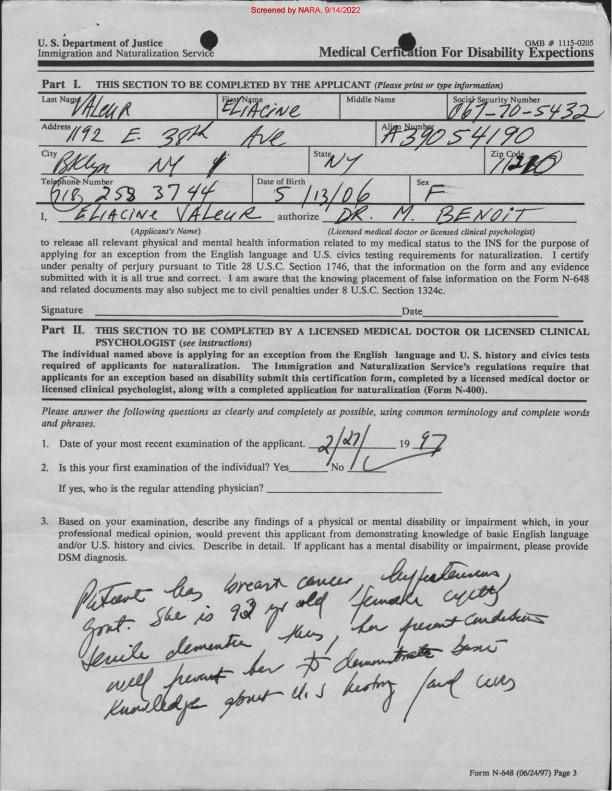 Screened by NARA, 9/14/2022
U. S. Department of Justice
OMB # 1115-0205
Immigration and Naturalization Service
Medical Cerfication For Disability Expections
Part I. THIS SECTION TO BE COMPLETED BY THE APPLICANT (Please print or type information)
Last Name First Name Middle Name Social Security Number
VALEUR ELIACINE 067-70-5432
Address Alien Number
1192 E. 38th Ave A39054190
City State Zip Code
Bklyn NY NY
Telephone Number Date of Birth Sex
718 258 3744 5/13/06 F
I, ELIACINE VALEUR authorize DR. M. BENOIT
(Applicant's Name) (Licensed medical doctor or licensed clinical psychologist)
to release all relevant physical and mental health information related to my medical status to the INS for the purpose of
applying for an exception from the English language and U.S. civics testing requirements for naturalization. I certify
under penalty of perjury pursuant to Title 28 U.S.C. Section 1746, that the information on the form and any evidence
submitted with it is all true and correct. I am aware that the knowing placement of false information on the Form N-648
and related documents may also subject me to civil penalties under 8 U.S.C. Section 1324c.
Signature Date
Part II. THIS SECTION TO BE COMPLETED BY A LICENSED MEDICAL DOCTOR OR LICENSED CLINICAL
PSYCHOLOGIST (see instructions)
The individual named above is applying for an exception from the English language and U. S. history and civics tests
required of applicants for naturalization. The Immigration and Naturalization Service's regulations require that
applicants for an exception based on disability submit this certification form, completed by a licensed medical doctor or
licensed clinical psychologist, along with a completed application for naturalization (Form N-400).
Please answer the following questions as clearly and completely as possible, using common terminology and complete words
and phrases.
1. Date of your most recent examination of the applicant. 2/27/ 19 97
2. Is this your first examination of the individual? Yes No ✓
If yes, who is the regular attending physician?
3. Based on your examination, describe any findings of a physical or mental disability or impairment which, in your
professional medical opinion, would prevent this applicant from demonstrating knowledge of basic English language
and/or U.S. history and civics. Describe in detail. If applicant has a mental disability or impairment, please provide
DSM diagnosis.
Patient has breast cancer,
gout. She is yr old female
senile dementia her present
will prevent her to demonstrate basic
knowledge about U.S history
Form N-648 (06/24/97) Page 3